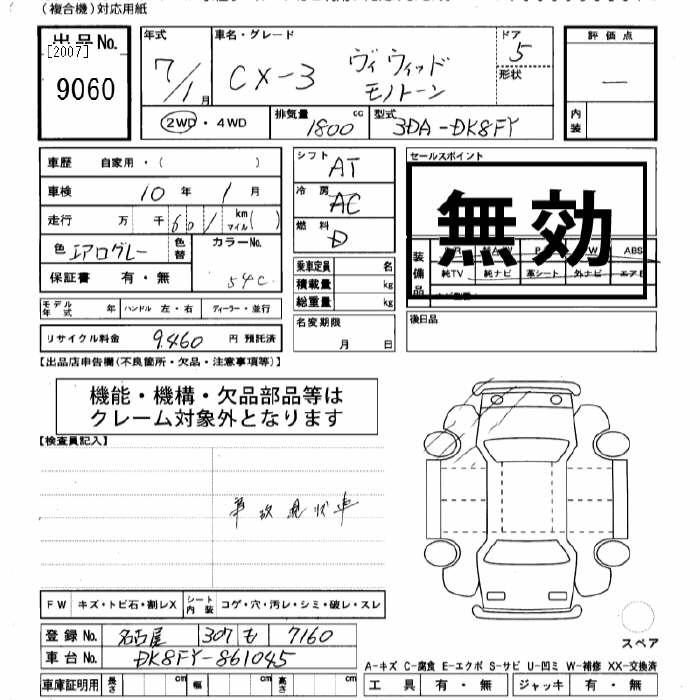 (複合機)対応用紙
出品No.
[2007]
9060
年式
7/1月
車名・グレード
CX-3 ヴィヴィッド
モノトーン
ドア
5
形状
評価点
―
内装
2WD・4WD
排気量
1800 cc
型式
3DA-DK8FY
車歴 自家用・( )
車検 10年 1月
走行 万 千 601 km マイル( )
色 エアログレー
色替
カラーNo.
54C
保証書 有・無
モデル年式 年 ハンドル 左・右 ディーラー・並行
リサイクル料金 9,460 円 預託済
シフト AT
冷房 AC
燃料 D
乗車定員 名
積載量 kg
総重量 kg
名変期限
月 日
セールスポイント
無効
装備品
ABS
純TV 純ナビ 革シート 外ナビ エアB
後日品
【出品店申告欄(不良箇所・欠品・注意事項等)】
機能・機構・欠品部品等は
クレーム対象外となります
【検査員記入】
事故現状車
FW キズ・トビ石・割レX
シート内装 コゲ・穴・汚レ・シミ・破レ・スレ
登録No. 名古屋 307 も 7160
車台No. DK8FY-861045
車庫証明用 長さ cm 幅 cm 高さ cm
スペア
A-キズ C-腐食 E-エクボ S-サビ U-凹ミ W-補修 XX-交換済
工具 有・無 ジャッキ 有・無